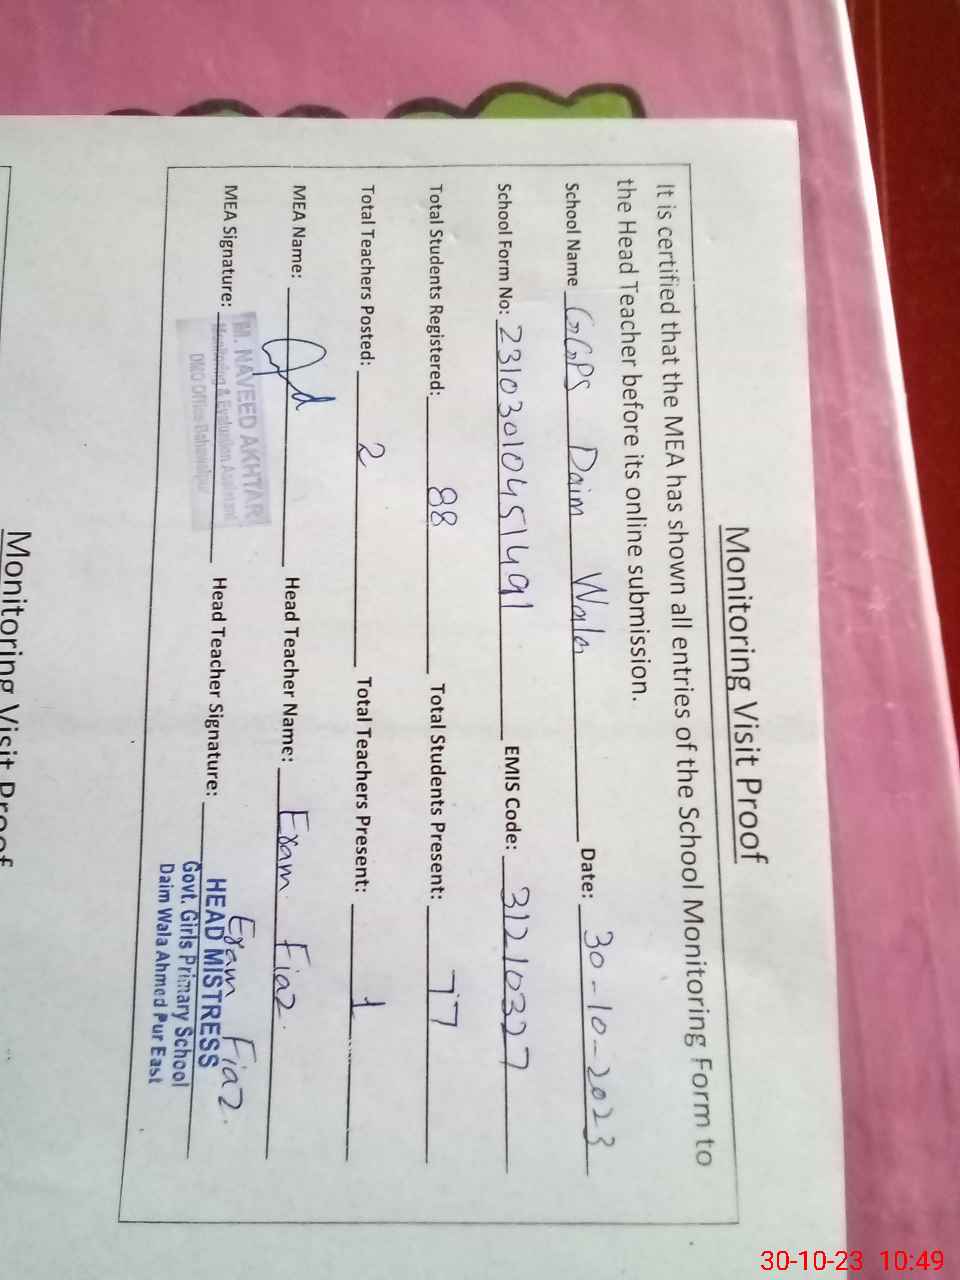 Monitoring Visit Proof
It is certified that the MEA has shown all entries of the School Monitoring Form to
the Head Teacher before its online submission.
School Name GGPS Daim Wala Date: 30-10-2023
School Form No: 23103010451491 EMIS Code: 31210327
Total Students Registered: 88 Total Students Present: 77
Total Teachers Posted: 2 Total Teachers Present: 1
MEA Name: Head Teacher Name: Exam Fiaz.
MEA Signature: Head Teacher Signature: Exam Fiaz.
M. NAVEED AKHTAR
Monitoring & Evaluation Assistant
DMO Office Bahawalpur
HEAD MISTRESS
Govt. Girls Primary School
Daim Wala Ahmed Pur East
Monitoring Visit Proof
30-10-23 10:49